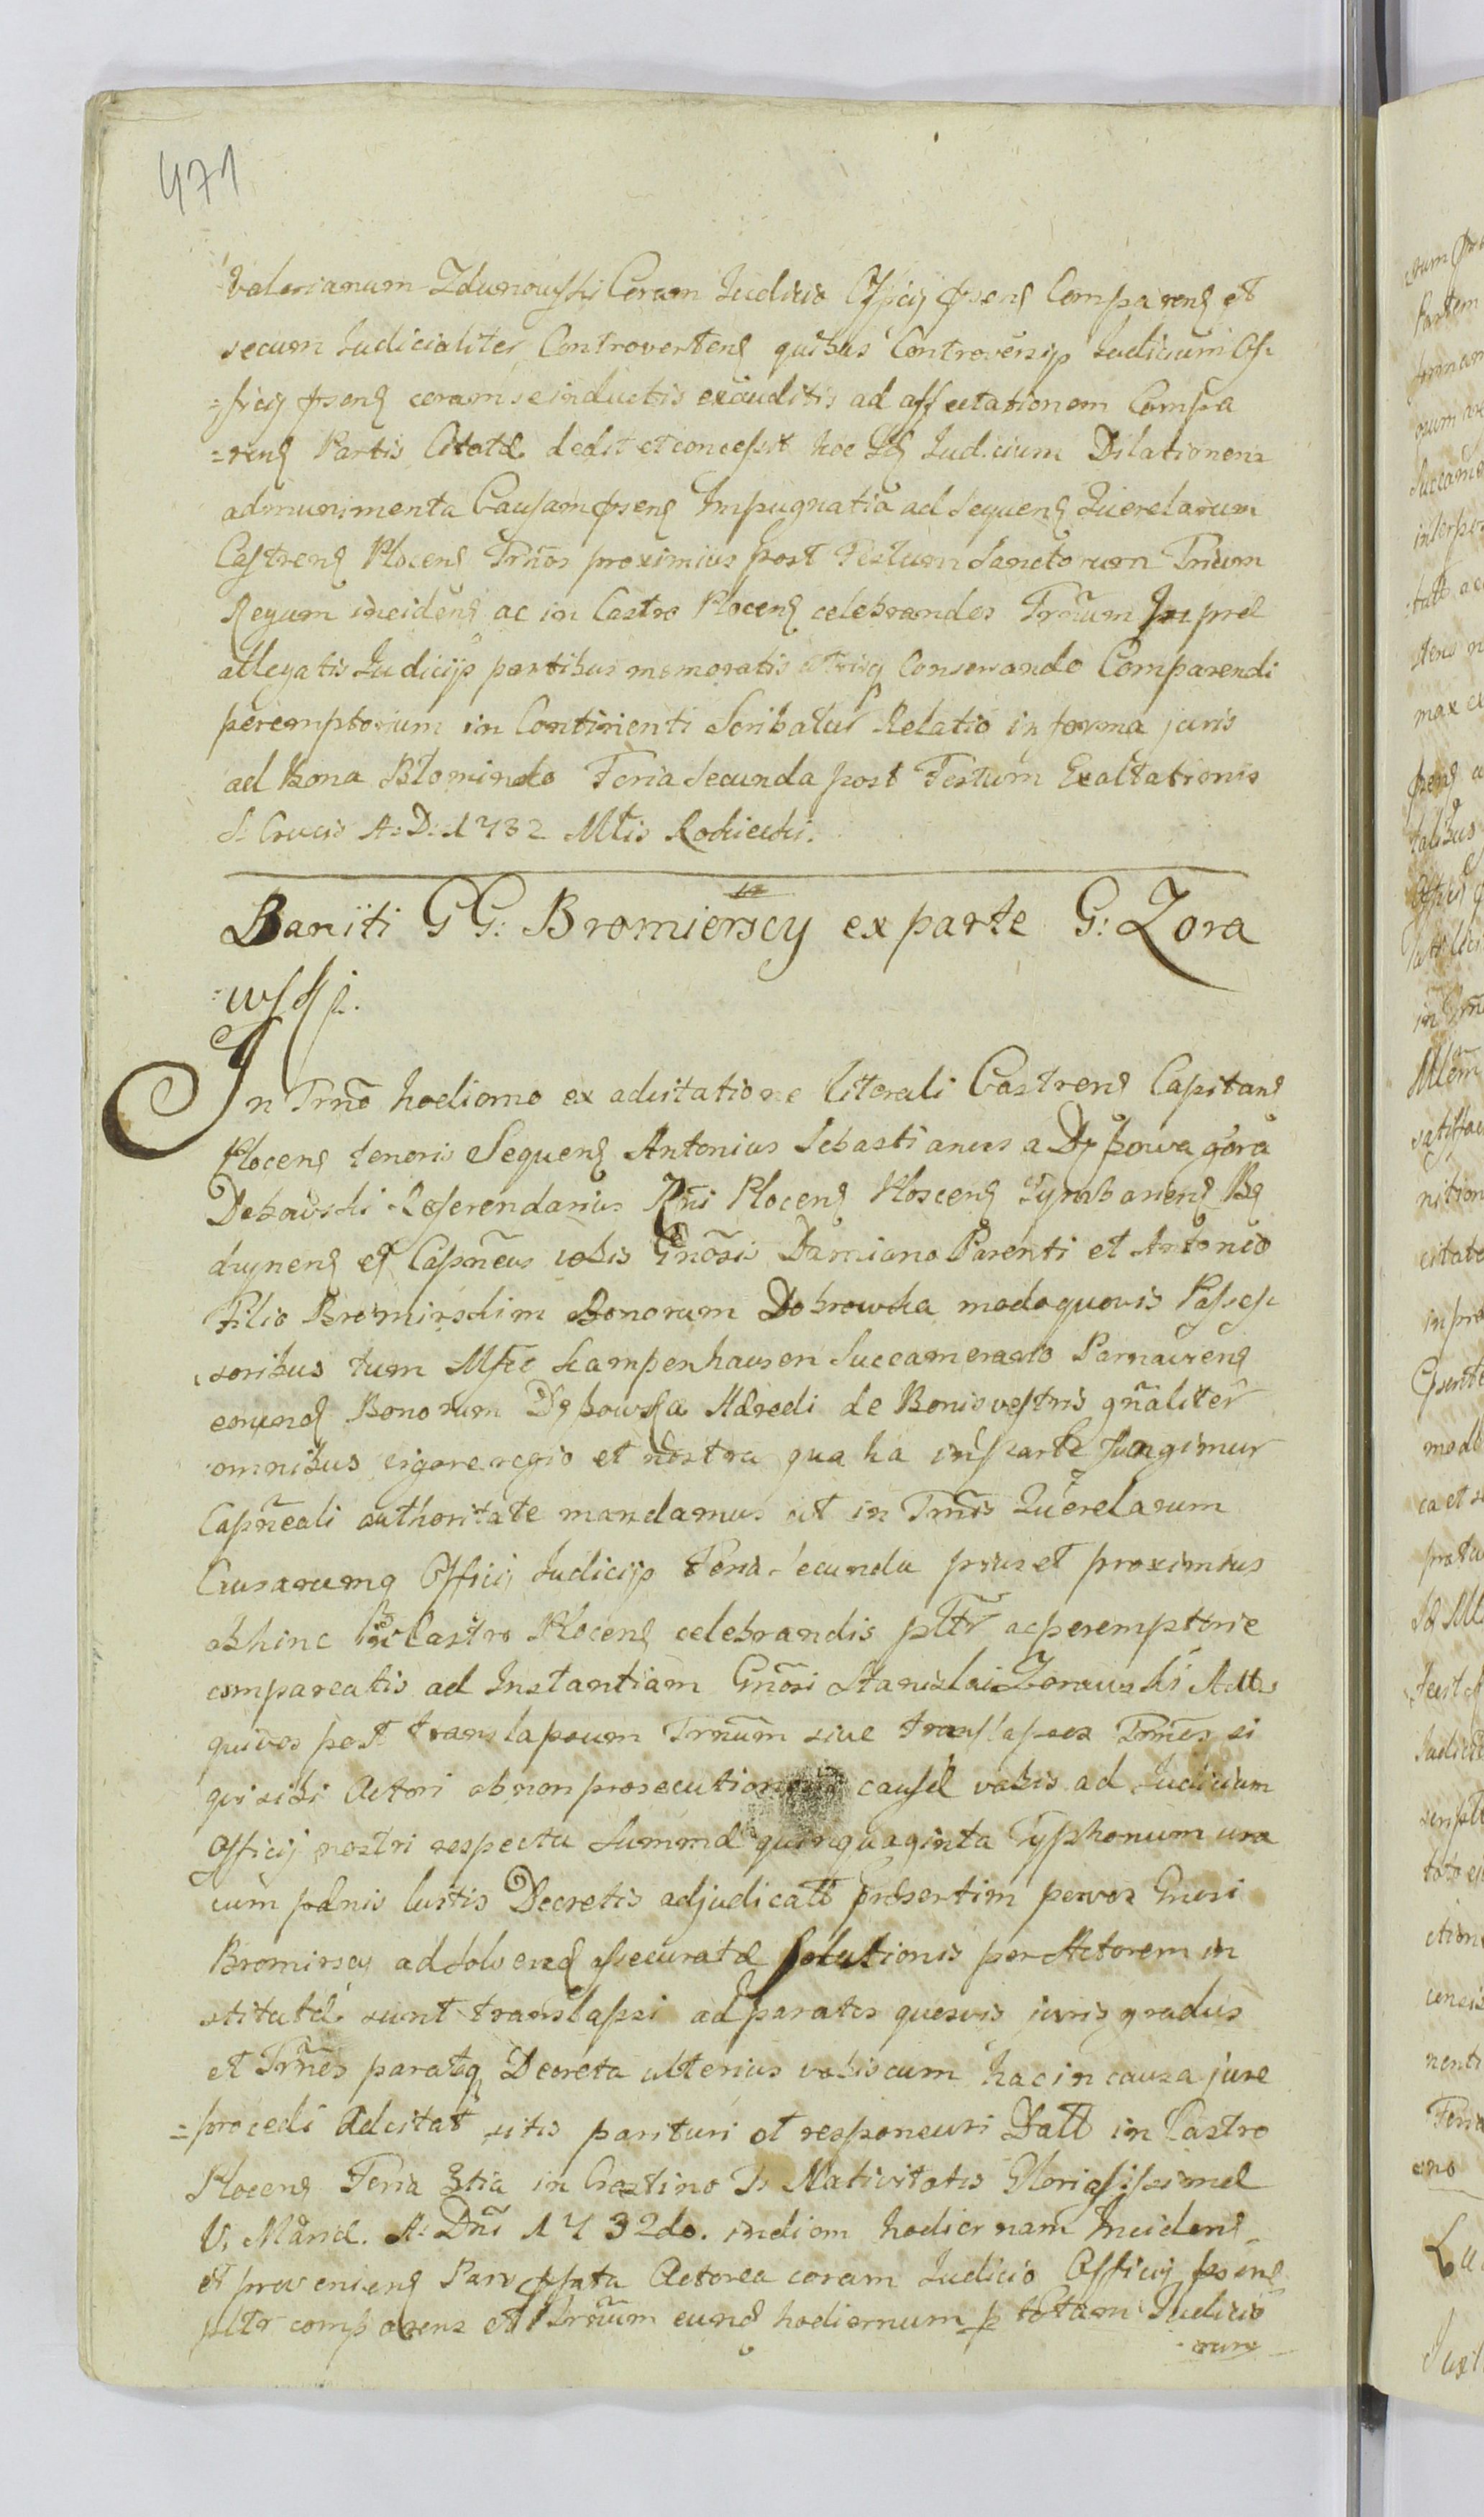 471
Valerianum Zdunowski Coram Iudicio Officij pseng Compareng et
secum Iudicialiter Controverteng quibus Controversijs Iudicium Of-
=ficij pseng coram se inductis exauditis ad affectationem Compa
=reng Partis Citatæ dedit et concessit hoc Iudicium Dilationem
ad munimenta Causam pseng Impugnatia ad sequeng Querelarum
Castreng Ploceng Trños proximius post Festum Sanctorum Trium
Regum incideng ac in Castro Ploceng celebrandos Trñum In præ
allegatis Iudicijs partibus memoratis utrisq Conservando Comparendi
peremptorium in Continenti Scribatur Relatio in forma juris
ad Bona Blomindo Feria Secunda post Festum Exaltationis
S. Crucis A: D: 1732 Mtis Rokicki.
Baniti GG: Bromierscy ex parte G: Zora
=wski.
In Trño hodierno ex adcitatione literali Castreng Capitang
Ploceng tenoris Sequeng Antonius Sebastianus a Dębowa góra
Dębowski Referendarius Rñi Ploceng Tymbarieng
et Capñeus vobis Gñosis Damiano Parenti et Antonio
Filio Bromirskim Bonorum Dobrowka modoquovis Posses-
soribus tum Mfco Kampenhausen Succamerario Parnavieng
eorund Bonorum Hæredi de Bonis vestris gñaliter
omnibus vigore regio et nostra qua hac in parte fungimur
Capñeali authoritate mandamus ut in Trñis Querelarum
Causarumq Officij Iudicijs Feria secunda prius et proximius
abhinc in Castro Ploceng celebrandis pltr ac peremptorie
compareatis ad Instantiam Gñosi Stanislai Zorawski Actors
qui vos post translapsum Trñum sive translapsos Trños si
qui sibi Actori ob non prosecutionem causæ vobis ad Iudicium
Officij nostri respectu Summæ quinquaginta Typhonum una
cum pænis lustis Decretis adjudicatt præsertim per vos Gnosi
Bromirscy ad solvend assecuratæ Solutionis per Actorem in
stitutæ sunt translapsi ad paratos quosvis juris gradus
et Trños parataq Decreta ulterius vobiscum hac in causa jure
=procedi Adcitat sitis parituri et responsuri Datt in Castro
Ploceng Feria 3tia in Crastino F. Nativitatis Gloriosissimæ
V. Mariæ. A: Dñi 1732do. in diem hodiernam Incideng
et provenieng Pars psata Actorea coram Iudicio Officij pseng
pltr comparens et Trñum eund hodiernum p totam Iudicio
rum